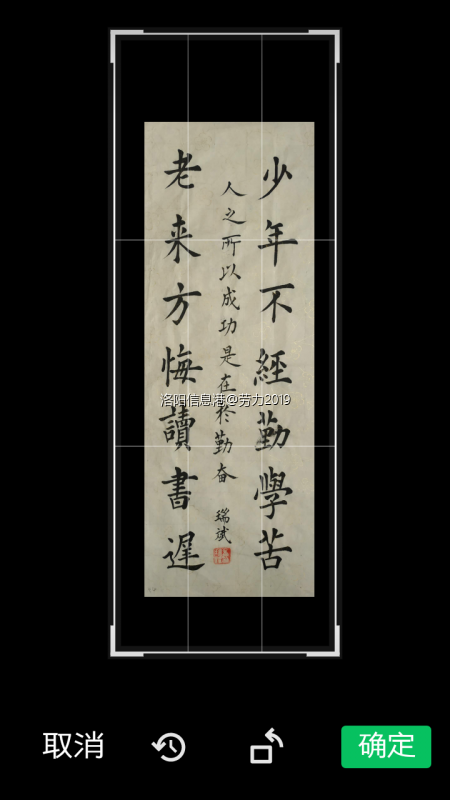 少年不經勤學苦
人之所以成功是在於勤奋
瑞斌
老来方悔讀書遲
洛阳信息港@劳力2019
取消
确定